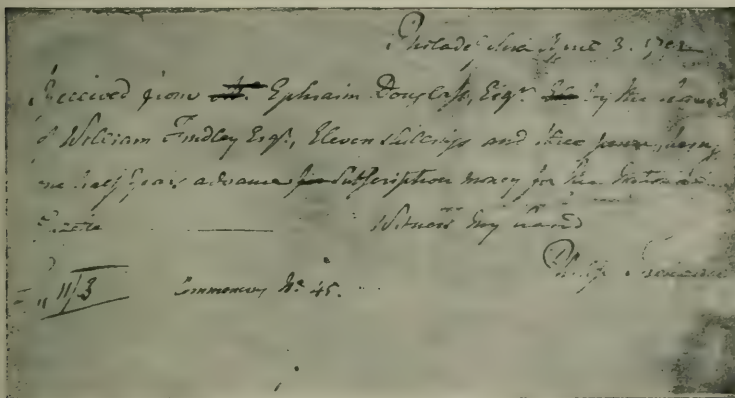 Philadelphia April 3. 1792
Received from Ephraim Douglass, Esqr. by the hands
of William Findley Esqr., Eleven shillings and three pence, being
one half Years advance Subscription money for the National
Gazette Witness my hand
Philip Freneau
11/3 Commencing No. 45.